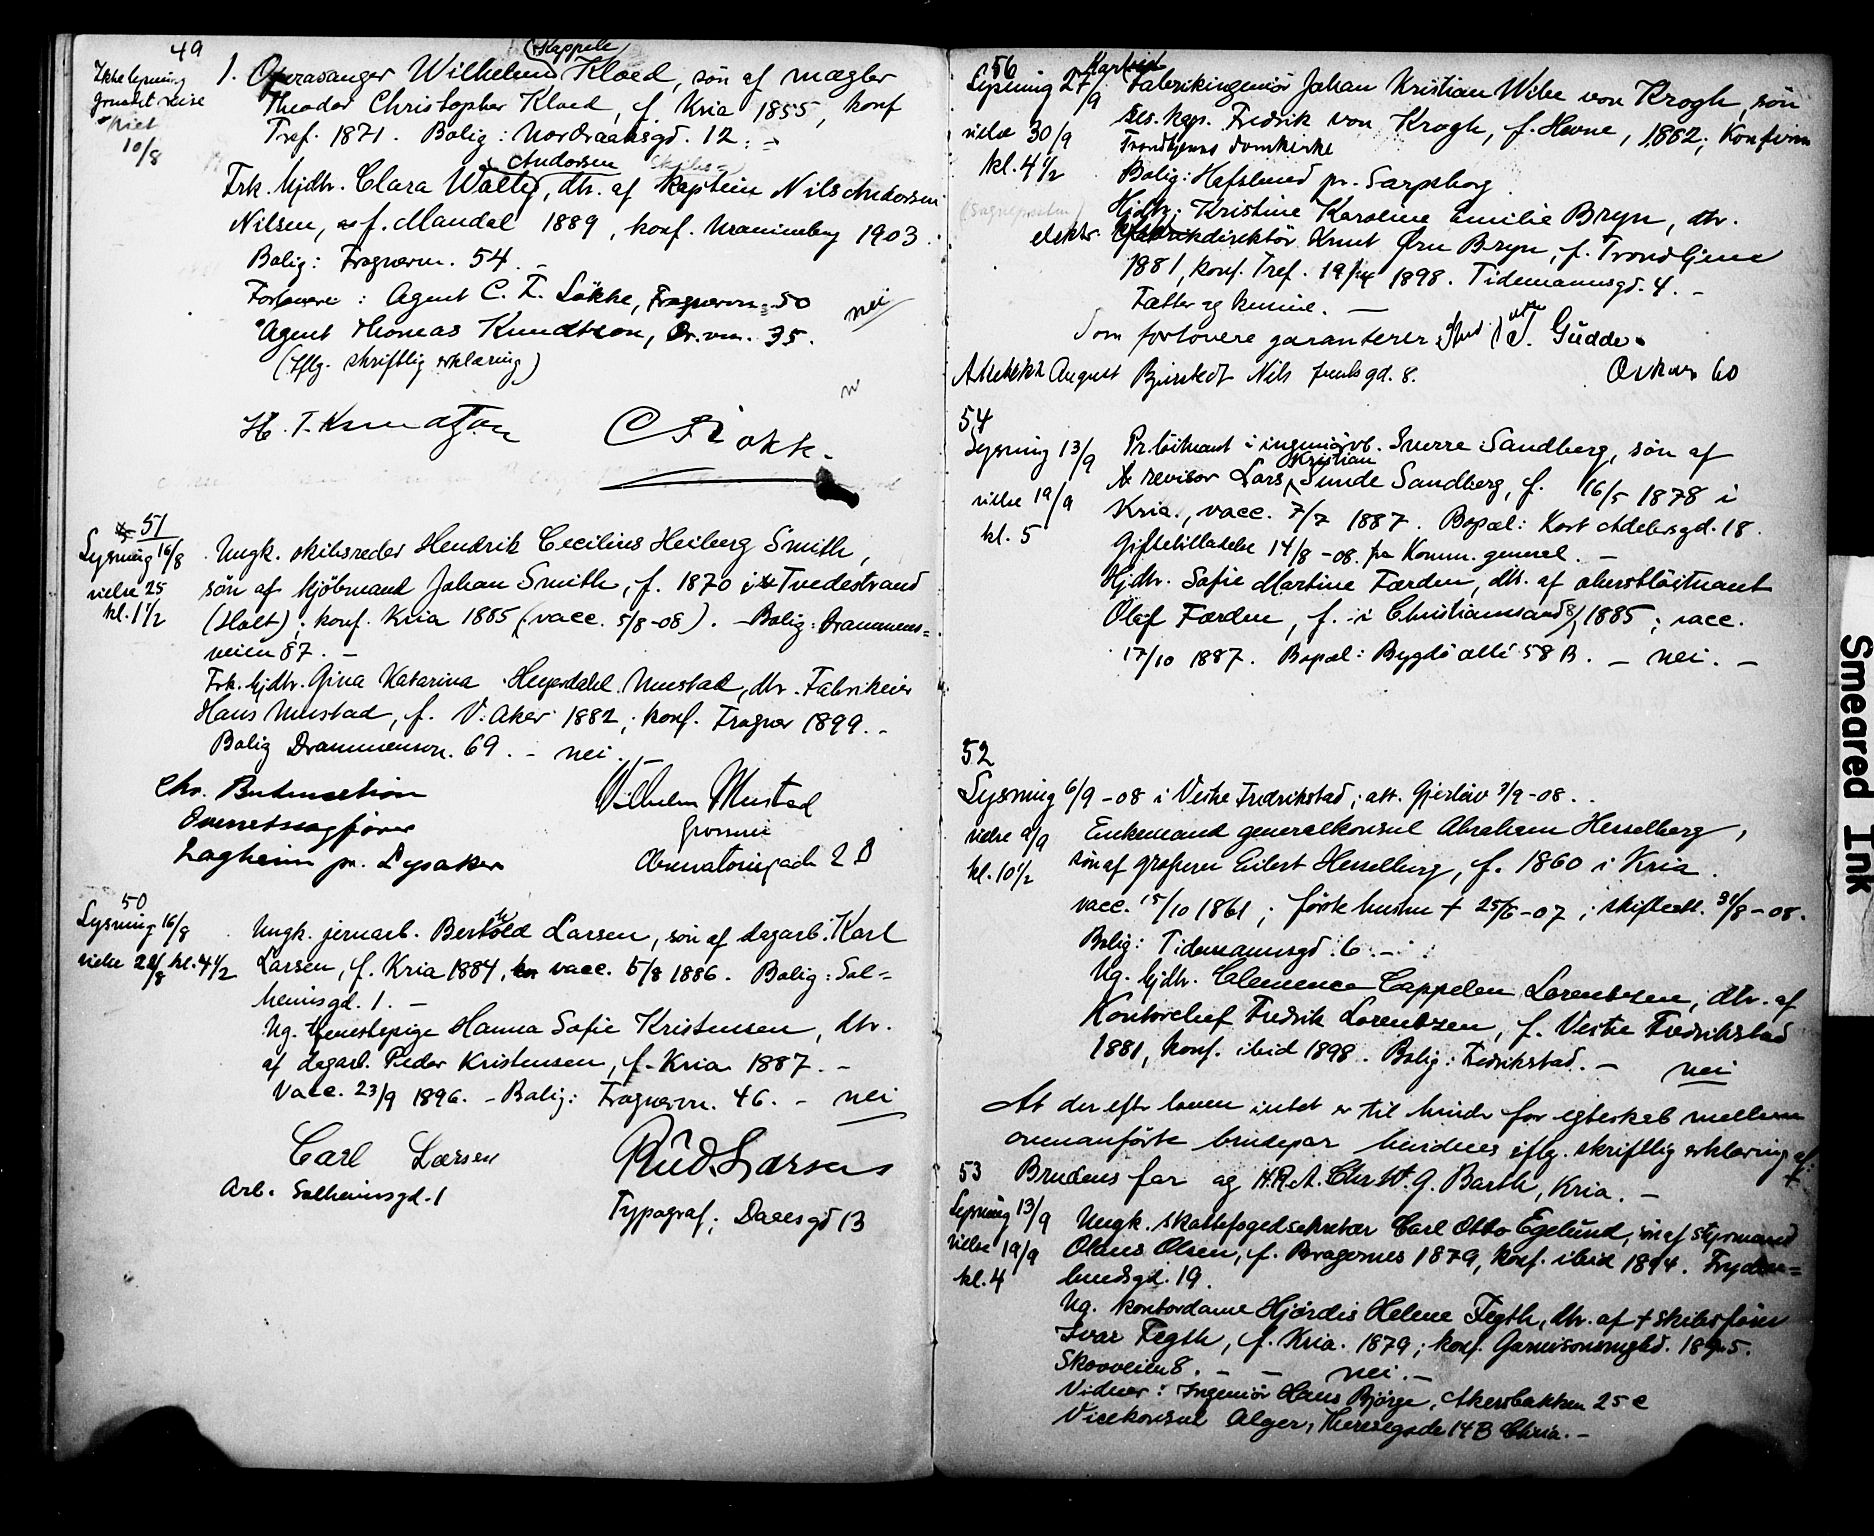 49
Ikke lysning
grundet reise
viet
10/8
(Kappele)
1. Operasanger Wilhelm Kloed, søn af mægler
Theodor Christopher Kloed, f. Kria 1855, konf
Tref. 1871. Bolig: Nordraaksgd. 12. -
Andorsen skibs-
Frk. hjdtr. Clara Wally, dtr. af kaptein Nils Andorsen
Nilsen, f. Mandal 1889, konf. Uranienborg 1903.
Bolig: Frognerv. 54. -
Forlovere: Agent C. F. Løkke, Frognervn. 50
Agent Thomas Knudtzon, Dr.vn. 35. nei
(Iflg. skriftlig erklæring)
H. T. Knudtzon C F Løkke.
51
Lysning 16/8
vielse 25
kl. 1 1/2
Ungk. skibsreder Hendrik Cecilius Heiberg Smith,
søn af kjøbmand Johan Smith, f. 1870 i Tvedestrand
(Holt); konf. Kria 1885 (vacc. 5/8-08). - Bolig: Drammens-
veien 87. -
Frk. hjdtr. Gina Katarina Heyerdahl Mustad, dtr. Fabrikeier
Hans Mustad, f. V. Aker 1882; konf. Frogner 1899. -
Bolig Drammensvn. 69. - nei. -
Chr. Wilhelm Mustad
Overretssagfører Grosserer
pr. Lysaker Observatoriegaden 2 B
50
Lysning 16/8
vielse 22/8 kl. 4 1/2
Ungk. jernarb. Berthold Larsen, søn af dagarb. Karl
Larsen, f. Kria 1884, vacc. 5/8 1886. Bolig: Sol-
heimsgd. 1. -
Ug. tjenestepige Hanna Sofie Kristensen, dtr.
af dagarb. Peder Kristensen, f. Kria 1887. -
Vacc. 23/9 1896. - Bolig: Frognervn. 46. - nei
Carl Larsen Rud. Larsen
Arb. Solheimsgd. 1 Typograf, Daasgd 13
56
Lysning 27/9
vielse 30/9
kl. 4 1/2
Fabrikingeniør Johan Kristian Wibe von Krogh, søn
Kap. Fredrik von Krogh, f. Horne, 1882; Konfirm
Trondhjems domkirke
Bolig: Hafslund pr. Sarpsborg
Hjdtr. Kristine Karoline Emilie Bryn, dtr.
elektr. direktør Knut Ørn Bryn, f. Trondhjem
1881, konf. Tref. 1898. Tidemannsgd. 4. -
Fætter og kusine. -
Som forlovere garanterer J. Gudde.
Arkitekt August Bjerstedt Nils Juulsgd. 8. 60
54
Lysning 13/9
vielse 19/9
kl. 5
Pr. løitnant i ingeniørvb. Sverre Sandberg, søn af
Kristian
revisor Lars Sunde Sandberg, f. 16/5 1878 i
Kria., vacc. 7/7 1887. Bopæl: Kort Adelersgd. 18.
Giftetilladelse 14/8-08. fra Komm. general. -
Hjdtr. Sofie Martine Færden, dtr. af oberstløitnant
Olaf Færden, f. i Christianssand 8/1 1885; vacc.
17/10 1887. Bopæl: Bygdø allé 58 B. - nei. -
52
Lysning 6/9-08 i Vestre Fredrikstad; att. 7/9-08.
vielse 9/9
kl. 10 1/2
Enkemand generalkonsul Abraham Hesselberg,
søn af Eilert Hesselberg, f. 1860 i Kria.
vacc. 15/10 1861; første hustru † 25/6-07; skifteatt. 31/8-08.
Bolig: Tidemannsgd. 6. -
Ug. hjdtr. Clemence Cappelen Lorentzen, dtr. af
Kontorchef Fredrik Lorentzen, f. Vestre Fredrikstad
1881, konf. ibid 1898. Bolig: Fredrikstad. - nei
At der efter loven intet er til hinder for egteskab mellem
ovenanførte brudepar bevidnes iflg. skriftlig erklæring af:
Brudens far og H.R.A. Chr. W. G. Barth, Kria. -
53
Lysning 13/9
vielse 19/9
kl. 4
Ungk. skattefogedsekretær Carl Otto Egelund, søn af styrmand
Olaus Olsen, f. Bragernes 1879, konf. ibid 1894. Fryden-
lundsgd. 19.
Ug. kontordame Hjørdis Helene Fegth, dtr. af † skibsfører
Ivar Fegth, f. Kria. 1879; konf. Garnisonsmghd. 1895.
Skovveien 8. - - nei. -
Vidner: Ingeniør Hans Bjørge, Akersbakken 25 c
Vicekonsul Alger, Theresegade 14B Chria. -
Smeared Ink